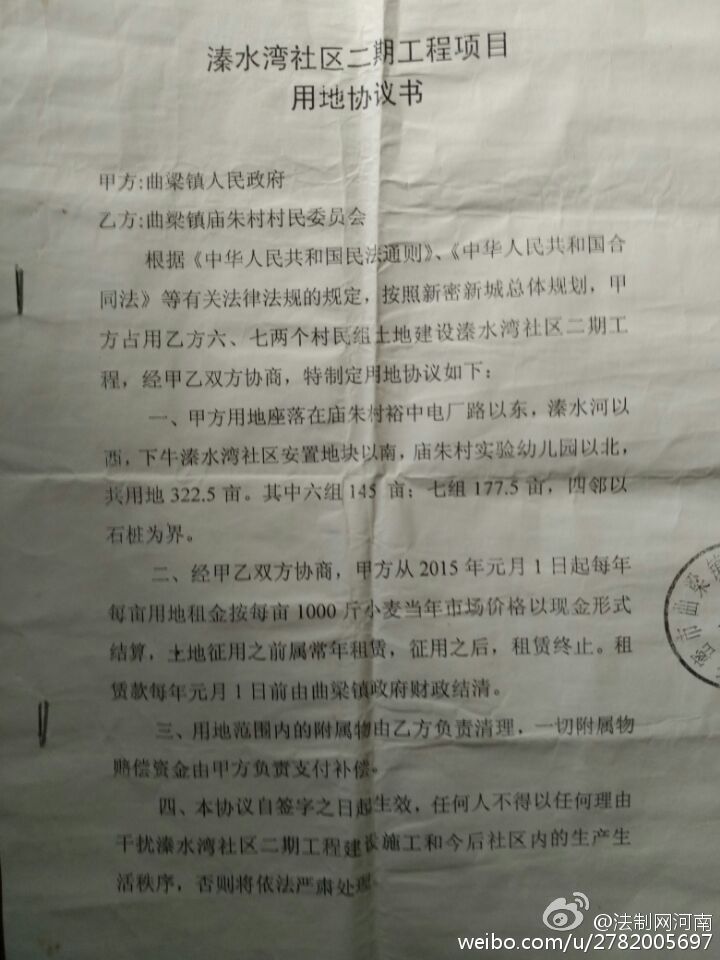 溱水湾社区二期工程项目
用地协议书
甲方:曲梁镇人民政府
乙方:曲梁镇庙朱村村民委员会
根据《中华人民共和国民法通则》、《中华人民共和国合
同法》等有关法律法规的规定，按照新密新城总体规划，甲
方占用乙方六、七两个村民组土地建设溱水湾社区二期工
程，经甲乙双方协商，特制定用地协议如下：
一、甲方用地座落在庙朱村裕中电厂路以东，溱水河以
西，下牛溱水湾社区安置地块以南，庙朱村实验幼儿园以北，
共用地 322.5 亩。其中六组 145 亩；七组 177.5 亩，四邻以
石桩为界。
二、经甲乙双方协商，甲方从 2015 年元月 1 日起每年
每亩用地租金按每亩 1000 斤小麦当年市场价格以现金形式
结算，土地征用之前属常年租赁，征用之后，租赁终止。租
赁款每年元月 1 日前由曲梁镇政府财政结清。
三、用地范围内的附属物由乙方负责清理，一切附属物
赔偿资金由甲方负责支付补偿。
四、本协议自签字之日起生效，任何人不得以任何理由
干扰溱水湾社区二期工程建设施工和今后社区内的生产生
活秩序，否则将依法严肃处理
密市曲梁镇
@法制网河南
weibo.com/u/2782005697